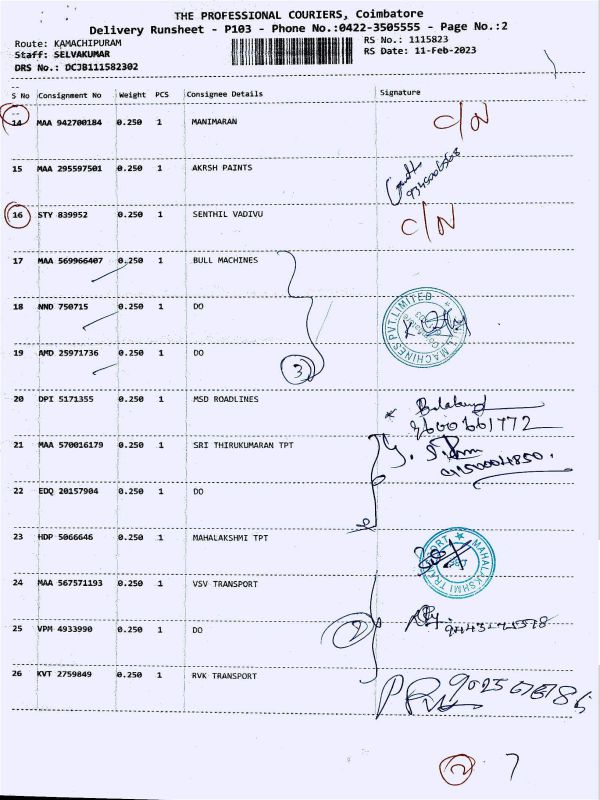 THE PROFESSIONAL COURIERS, Coimbatore
Delivery Runsheet - P103 - Phone No.:0422-3505555 - Page No.:2
Route: KAMACHIPURAM RS No.: 1115823
Staff: SELVAKUMAR RS Date: 11-Feb-2023
DRS No.: DCJB111582302
S No Consignment No Weight PCS Consignee Details Signature
14 MAA 942700184 0.250 1 MANIMARAN C/N
15 MAA 295597501 0.250 1 AKRSH PAINTS
16 STY 839952 0.250 1 SENTHIL VADIVU C/N
17 MAA 569966407 0.250 1 BULL MACHINES
18 NND 750715 0.250 1 DO
19 AMD 25971736 0.250 1 DO
3
20 DPI 5171355 0.250 1 MSD ROADLINES
9600661772
21 MAA 570016179 0.250 1 SRI THIRUKUMARAN TPT
22 EDQ 20157904 0.250 1 DO
23 HDP 5066646 0.250 1 MAHALAKSHMI TPT
MAHALAKSHMI TRANSPORT
24 MAA 567571193 0.250 1 VSV TRANSPORT
25 VPM 4933990 0.250 1 DO
2
26 KVT 2759849 0.250 1 RVK TRANSPORT
2 7